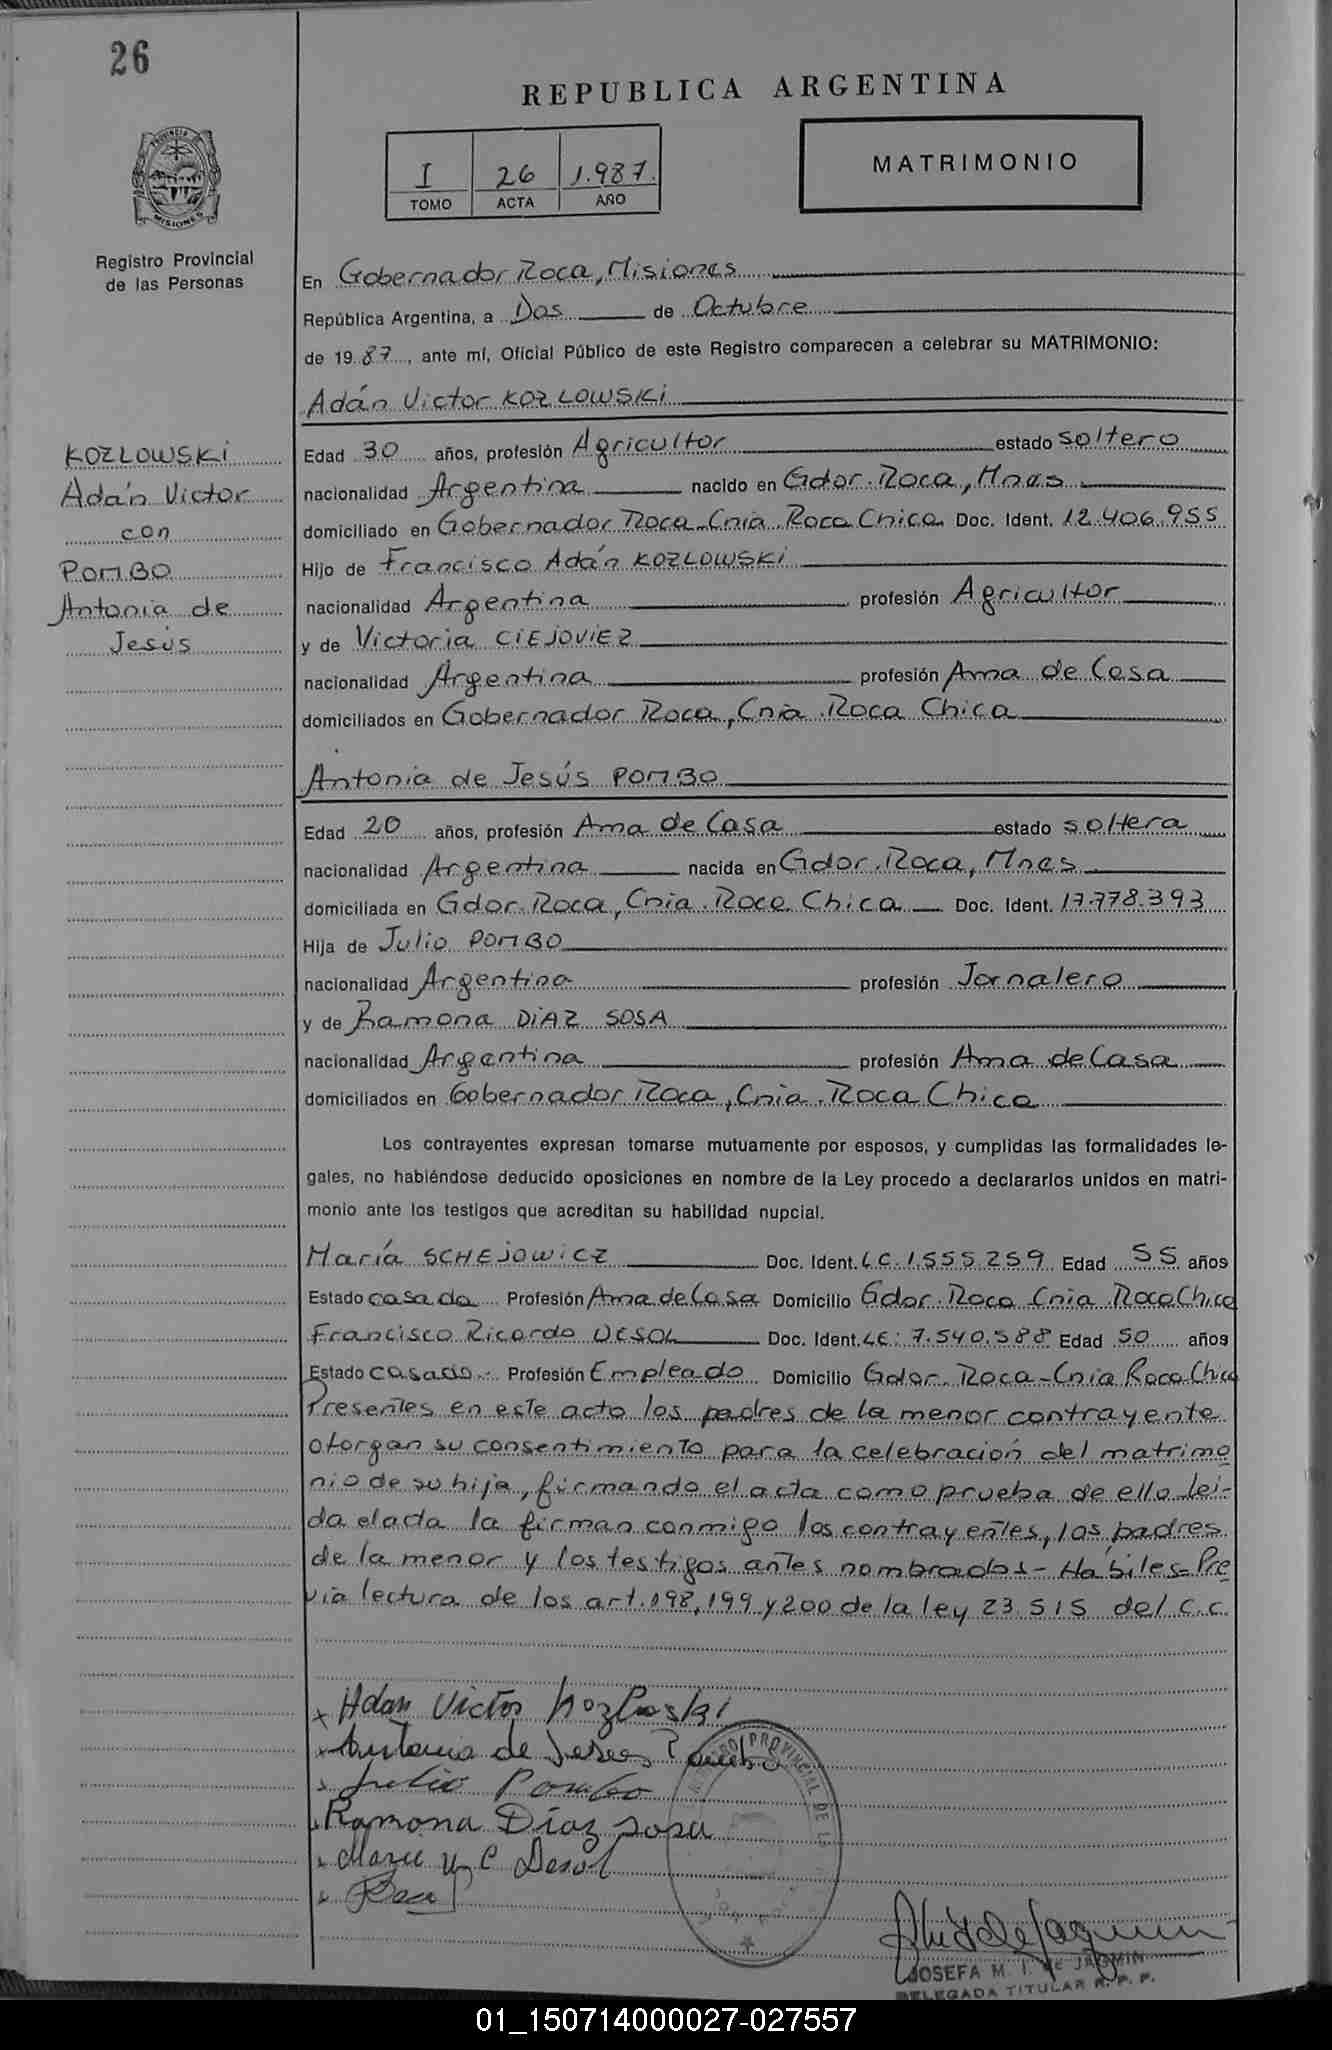 26
REPUBLICA ARGENTINA
PROVINCIA DE
MISIONES
I 26 1.987.
TOMO ACTA AÑO
MATRIMONIO
Registro Provincial
de las Personas
En Gobernador Roca, Misiones
República Argentina, a Dos de Octubre
de 19 87, ante mí, Oficial Público de este Registro comparecen a celebrar su MATRIMONIO:
Adán Victor KOZLOWSKi
KOZLOWSKi
Adán Victor
con
POMBO
Antonia de
Jesús
Edad 30 años, profesión Agricultor estado soltero
nacionalidad Argentina nacido en Gdor. Roca, Mnes
domiciliado en Gobernador Roca-Cnia. Roca Chica Doc. Ident. 12.406.955
Hijo de Francisco Adán KOZLOWSKi
nacionalidad Argentina profesión Agricultor
y de Victoria CIEJOVIEZ
nacionalidad Argentina profesión Ama de Casa
domiciliados en Gobernador Roca, Cnia. Roca Chica
Antonia de Jesús POMBO
Edad 20 años, profesión Ama de Casa estado soltera
nacionalidad Argentina nacida en Gdor. Roca, Mnes
domiciliada en Gdor. Roca, Cnia. Roca Chica Doc. Ident. 17.778.393
Hija de Julio POMBO
nacionalidad Argentina profesión Jornalero
y de Ramona DIAZ SOSA
nacionalidad Argentina profesión Ama de Casa
domiciliados en Gobernador Roca, Cnia. Roca Chica
Los contrayentes expresan tomarse mutuamente por esposos, y cumplidas las formalidades le-
gales, no habiéndose deducido oposiciones en nombre de la Ley procedo a declararlos unidos en matri-
monio ante los testigos que acreditan su habilidad nupcial.
María SCHEJOWICZ Doc. Ident. L.C. 1.555.259 Edad 55 años
Estado casada Profesión Ama de Casa Domicilio Gdor. Roca Cnia Roca Chica
Francisco Ricardo DESOL Doc. Ident. LE: 7.540.588 Edad 50 años
Estado casado Profesión Empleado Domicilio Gdor. Roca-Cnia Roca Chica
Presentes en este acto los padres de la menor contrayente
otorgan su consentimiento para la celebración del matrimo
nio de su hija, firmando el acta como prueba de ello Lei-
da el acta la firman conmigo los contrayentes, los padres
de la menor y los testigos antes nombrados - Hábiles= Pre
via lectura de los art. 198, 199 y 200 de la ley 23.515 del C.C.
x Adan Victor Kozloski
Antonia de Jesus Pombo
Julio Pombo
Ramona Díaz sosa
Desol
REGISTRO PROVINCIAL DE L
JOSEFA M. I. DE JAGMIN
DELEGADA TITULAR R. P. P.
01_150714000027-027557